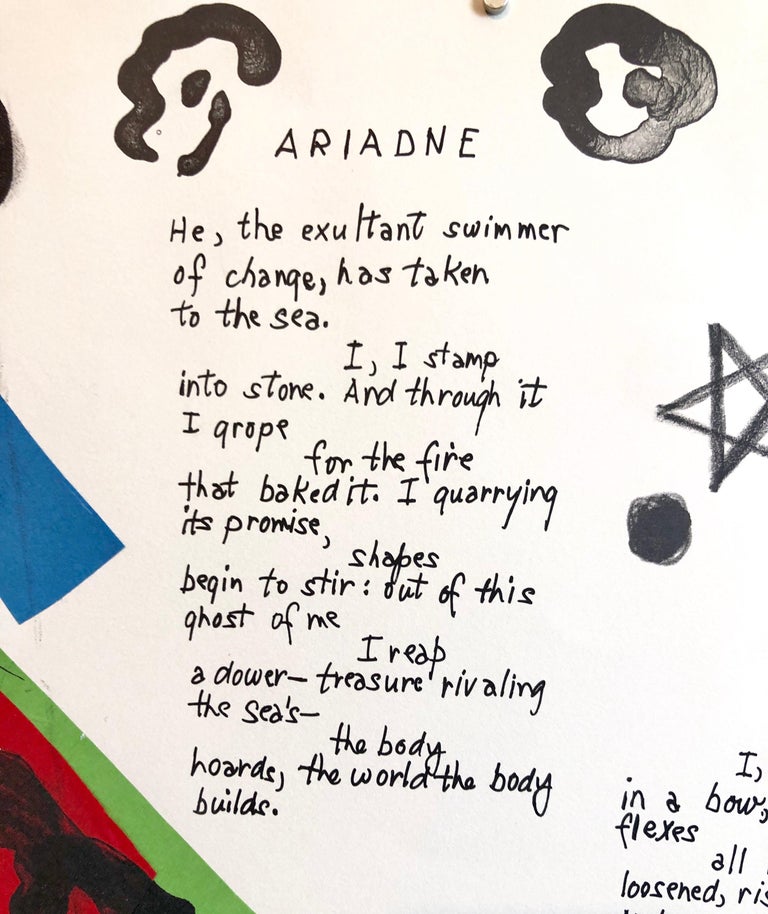 ARIADNE
He, the exultant swimmer
of change, has taken
to the sea.
I, I stamp
into stone. And through it
I grope
for the fire
that baked it. I quarrying
its promise,
shapes
begin to stir: out of this
ghost of me
I reap
a dower—treasure rivaling
the sea's—
the body
hoards, the world the body
builds.
I,
in a bow,
flexes
all
loosened,